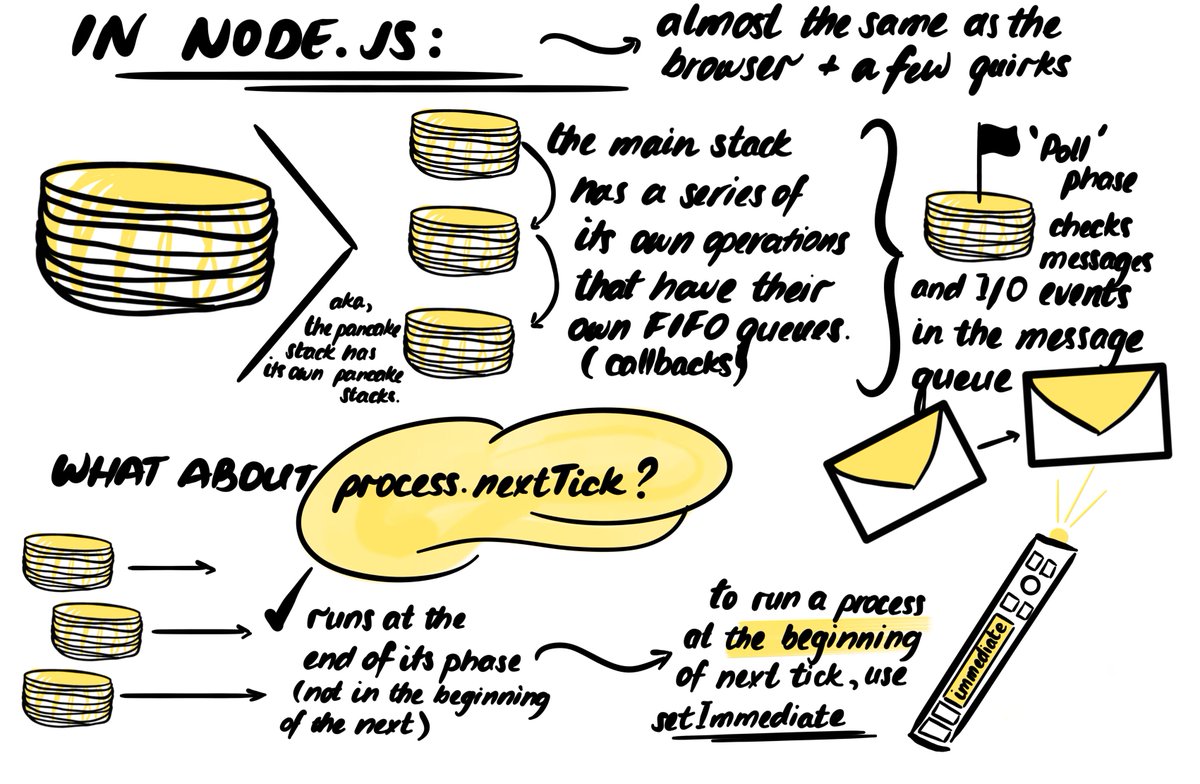 IN NODE.JS:
almost the same as the
browser + a few quirks
the main stack
has a series of
its own operations
that have their
own FIFO queues.
(callbacks)
aka,
the pancake
stack has
its own pancake
stacks.
'Poll'
phase
checks
messages
and I/O events
in the message
queue
WHAT ABOUT process.nextTick?
runs at the
end of its phase
(not in the beginning
of the next)
to run a process
at the beginning
of next tick, use
setImmediate
immediate